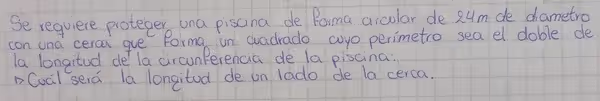 Se requiere proteger una piscina de forma circular de 24m de diametro
con una cerca que forma un cuadrado cuyo perímetro sea el doble de
la longitud de la circunferencia de la piscina.
▷ Cuál será la longitud de un lado de la cerca.